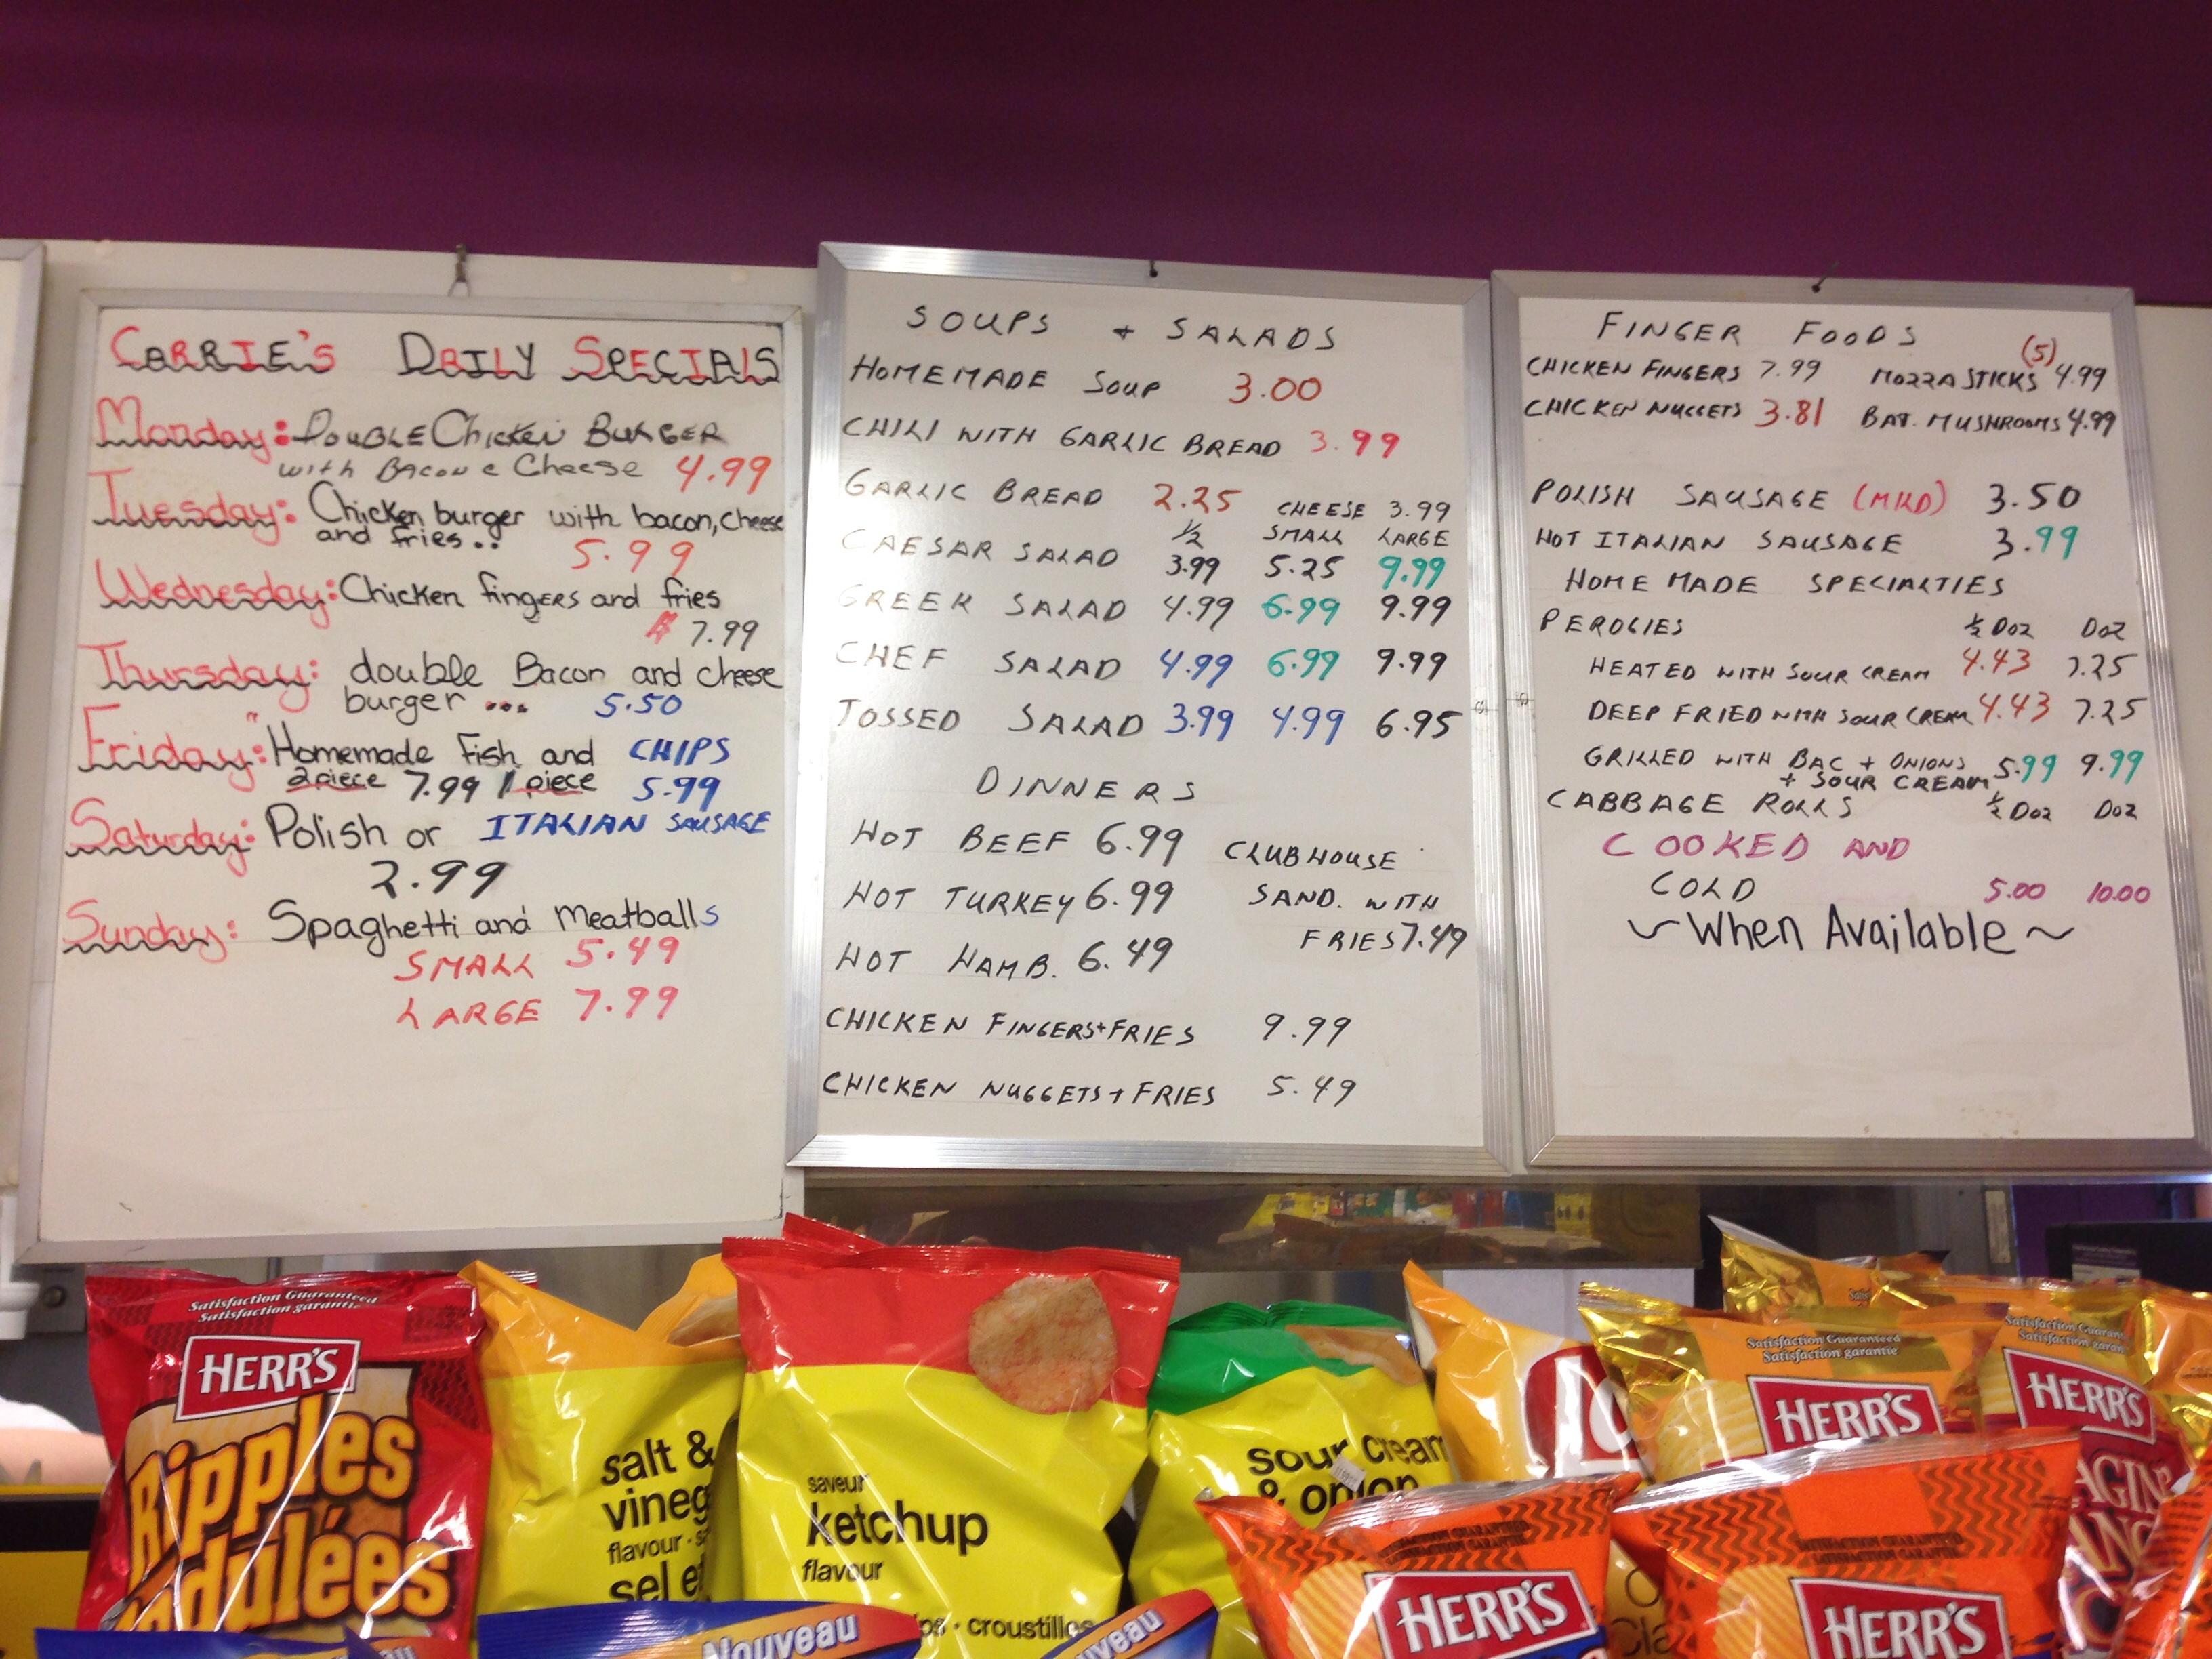 CARRIE'S DAILY SPECIALS
Monday: DOUBLE Chicken BURGER
with BACON e Cheese 4.99
Tuesday: Chicken burger with bacon, cheese
and fries.. 5.99
Wednesday: Chicken fingers and fries
$ 7.99
Thursday: double Bacon and cheese
burger ... 5.50
Friday: "Homemade Fish and CHIPS
2 piece 7.99 / 1 piece 5.99
Saturday: Polish or ITALIAN SAUSAGE
2.99
Sunday: Spaghetti and Meatballs
SMALL 5.49
LARGE 7.99
SOUPS + SALADS
HOMEMADE SOUP 3.00
CHILI WITH GARLIC BREAD 3.99
GARLIC BREAD 2.25 CHEESE 3.99
½ SMALL LARGE
CAESAR SALAD 3.99 5.25 9.99
GREEK SALAD 4.99 6.99 9.99
CHEF SALAD 4.99 6.99 9.99
TOSSED SALAD 3.99 4.99 6.95
DINNERS
HOT BEEF 6.99 CLUBHOUSE
HOT TURKEY 6.99 SAND. WITH
FRIES 7.49
HOT HAMB. 6.49
CHICKEN FINGERS + FRIES 9.99
CHICKEN NUGGETS + FRIES 5.49
FINGER FOODS
(5)
CHICKEN FINGERS 7.99 MOZZA STICKS 4.99
CHICKEN NUGGETS 3.81 BAT. MUSHROOMS 4.99
POLISH SAUSAGE (MILD) 3.50
HOT ITALIAN SAUSAGE 3.99
HOME MADE SPECIALTIES
PEROGIES ½ DOZ DOZ
HEATED WITH SOUR CREAM 4.43 7.25
DEEP FRIED WITH SOUR CREAM 4.43 7.25
GRILLED WITH BAC + ONIONS 5.99 9.99
+ SOUR CREAM
CABBAGE ROLLS ½ DOZ DOZ
COOKED AND
COLD 5.00 10.00
~When Available~
Satisfaction Guaranteed
Satisfaction garantie
HERR'S
Ripples
salt &
vineg
flavour
sel et
saveur
ketchup
flavour
croustilles
sour cream
& onion
Satisfaction Guaranteed
Satisfaction garantie
HERR'S
HERR'S
HERR'S
HERR'S
Nouveau